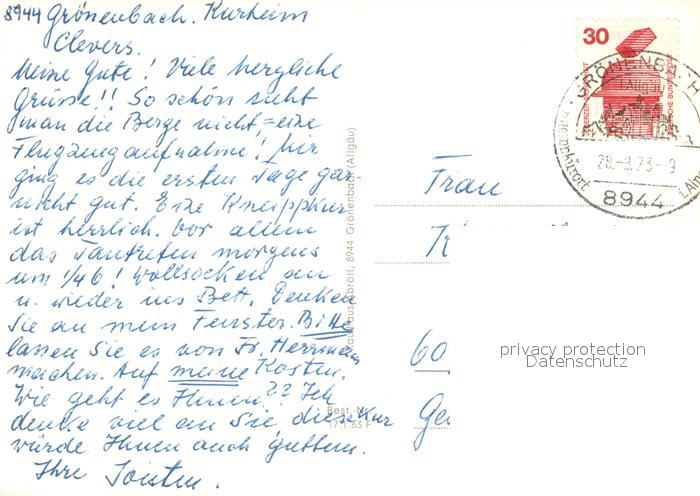 8944 Grönenbach. Kurheim
Clevers.
Meine Gute! Viele herzliche
Grüsse!! So schön sieht
man die Berge nicht, = eine
Flugzeugaufnahme! Mir
ging es die ersten Tage gar-
nicht gut. Eine Kneippkur
ist herrlich. Vor allem
das Tautreten morgens
um 1/46! Wollsocken an
u. wieder ins Bett. Denken
Sie an mein Fenster. Bitte
lassen Sie es von Fr. Herrmann
machen. Auf meine Kosten.
Wie geht es Ihnen?? Ich
denke viel an Sie, diese Kur
würde Ihnen auch guttun.
Ihre
Kaufhaus Abröll, 8944 Grönenbach (Allgäu)
Best.-Nr.
30
DEUTSCHE BUNDESPOST
GRÖNENBACH
28.-8.73.-9
8944
Frau
K
60
Ge
privacy protection
Datenschutz